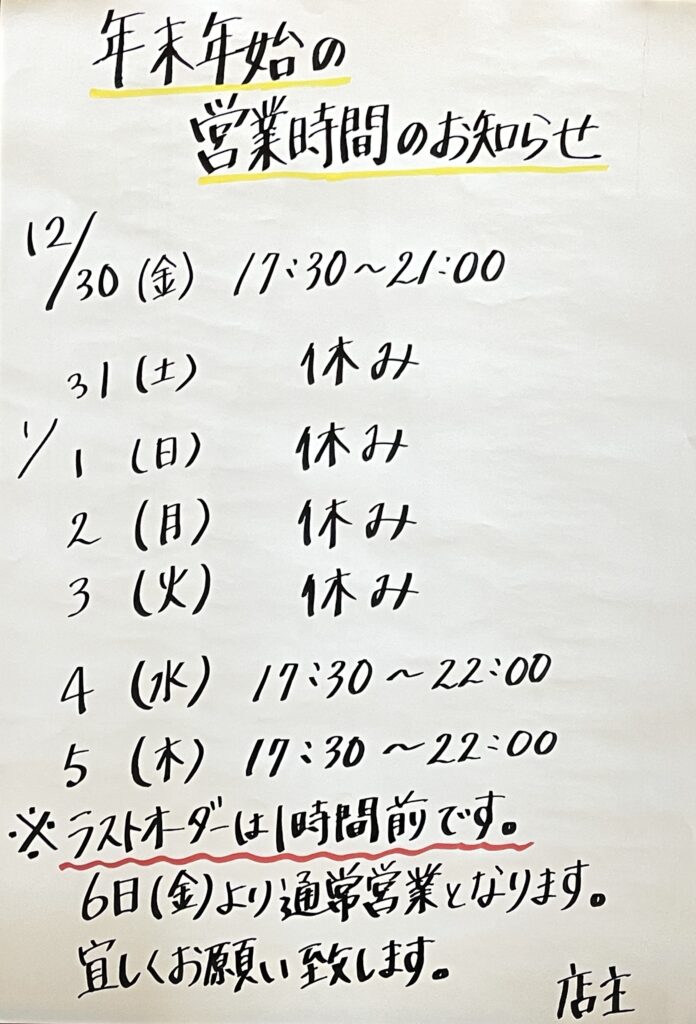 年末年始の
営業時間のお知らせ
12/30(金) 17:30～21:00
31(土) 休み
1/1(日) 休み
2(月) 休み
3(火) 休み
4(水) 17:30～22:00
5(木) 17:30～22:00
※ラストオーダーは1時間前です。
6日(金)より通常営業となります。
宜しくお願い致します。
店主